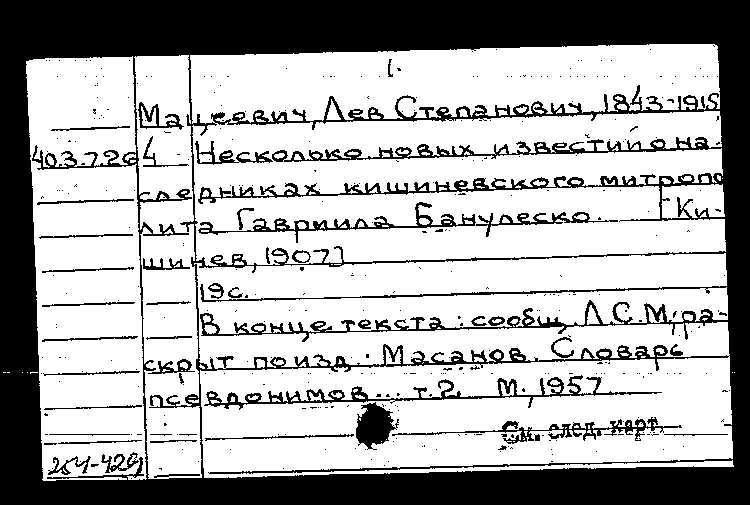 1.
Мацеевич, Лев Степанович, 1843-1915
40.3.7.264 Несколько новых известий о на-
следниках кишиневского митропо
лита Гавриила Банулеско. [Ки-
шинев, 1907]
19с.
В конце текста: сообщ. Л.С.М; ра-
скрыт по изд. Масанов. Словарь
псевдонимов... т.2. М., 1957
См. след. карт.
254-429